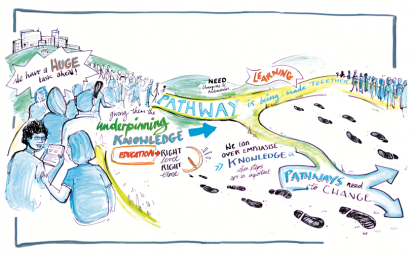 We have a HUGE
task ahead!
giving them the
underpinning
KNOWLEDGE
EDUCATION
RIGHT
level
RIGHT
time
NEED
LEARNING
PATHWAY is being made TOGETHER
We can
OVER EMPHASISE
KNOWLEDGE
PATHWAYS need
to CHANGE